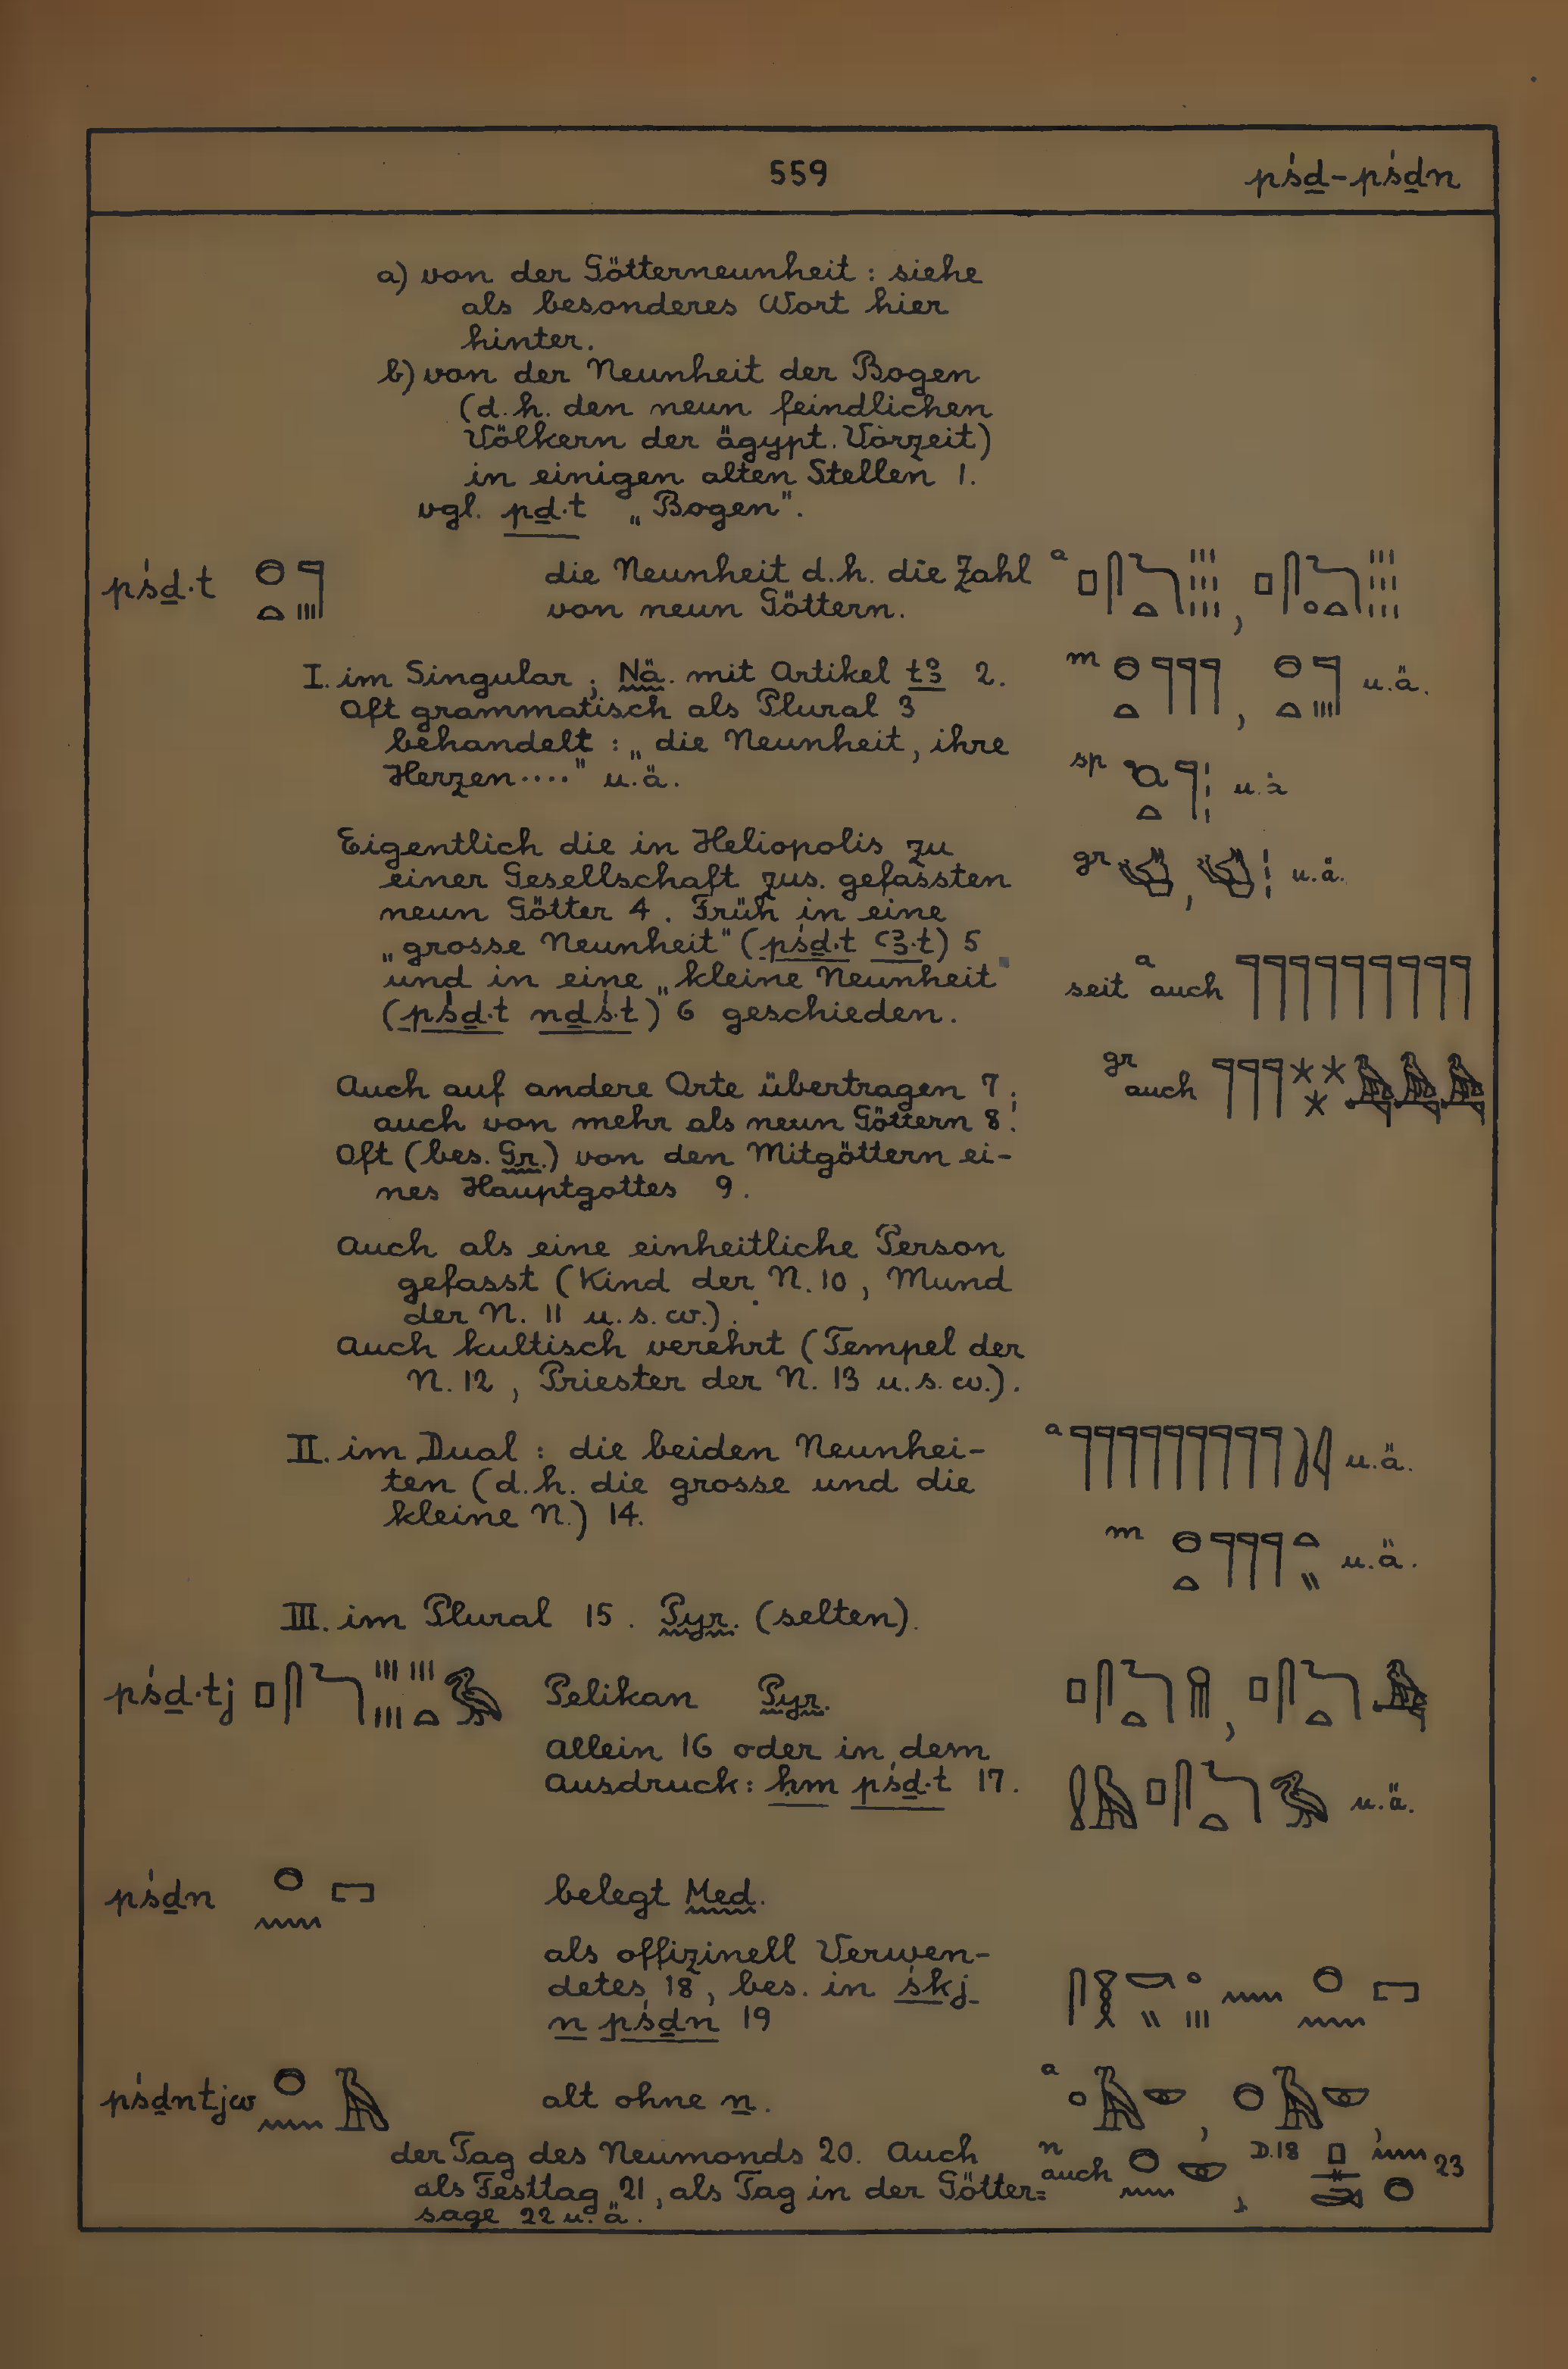 559
pśḏ-pśḏn
a) von der Götterneunheit : siehe
als besonderes Wort hier
hinter.
b) von der Neunheit der Bogen
(d.h. den neun feindlichen
Völkern der ägypt. Vorzeit)
in einigen alten Stellen 1.
vgl. pḏ.t „Bogen".
pśḏ.t
die Neunheit d.h. die Zahl
von neun Göttern.
a
I. im Singular ; Nä. mit Artikel tꜣ 2.
Oft grammatisch als Plural 3
behandelt : „die Neunheit, ihre
Herzen····" u.ä.
m u.ä.
sp u.ä
gr u.ä.
Eigentlich die in Heliopolis zu
einer Gesellschaft zus. gefassten
neun Götter 4. Früh in eine
„grosse Neunheit" (pśḏ.t ꜥꜣ.t) 5
und in eine „kleine Neunheit"
(pśḏ.t nḏś.t) 6 geschieden.
seit a auch
gr auch
Auch auf andere Orte übertragen 7;
auch von mehr als neun Göttern 8.
Oft (bes. Gr.) von den Mitgöttern ei-
nes Hauptgottes 9.
Auch als eine einheitliche Person
gefasst (Kind der N. 10, Mund
der N. 11 u.s.w.).
Auch kultisch verehrt (Tempel der
N. 12, Priester der N. 13 u.s.w.).
II. im Dual : die beiden Neunhei-
ten (d.h. die grosse und die
kleine N.) 14.
a u.ä.
m u.ä.
III. im Plural 15. Pyr. (selten).
pśḏ.tj
Pelikan Pyr.
allein 16 oder in dem
Ausdruck: ḥm pśḏ.t 17.
u.ä.
pśḏn
belegt Med.
als offizinell Verwen-
detes 18, bes. in śkj
n pśḏn 19
pśḏntjw
alt ohne n.
a
der Tag des Neumonds 20. Auch
als Festtag 21, als Tag in der Götter=
sage 22 u.ä.
n auch D.18 23